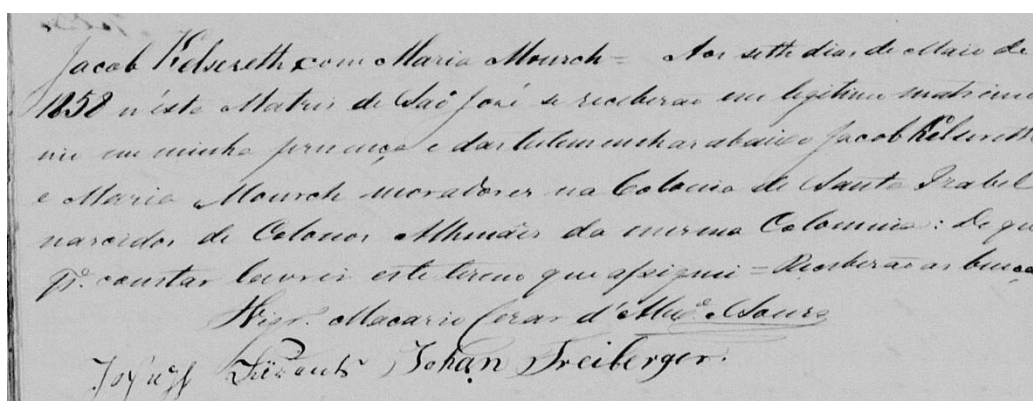 Jacob Kelsereth com Maria Mourch = Aos sette dias de Maio de
1858 n'ésta Matris de Saõ José se receberaõ em legitimo matrimo
nio em minha prezença e das testemunhas abaixo Jacob Kelsereth
e Maria Mourch moradores na Colonia de Santa Izabel
nascidos de Colonos Alhemães da mesma Colonnia: De que
pª. constar lavrei este termo que assignei = Receberaõ as bença
Vigrº. Macario Cezar d'Alexº. e Souza
Johan Freiberger.